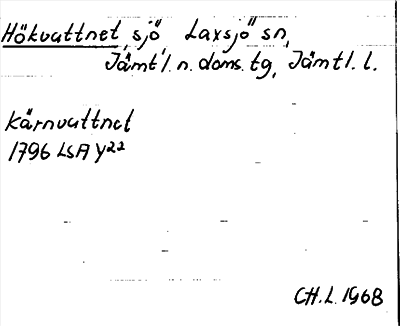 Hökvattnet, sjö Laxsjö sn,
Jämtl. n. doms. tg, Jämtl. l.
Kärnvattnet
1796 LSA Y22
CH.L. 1968